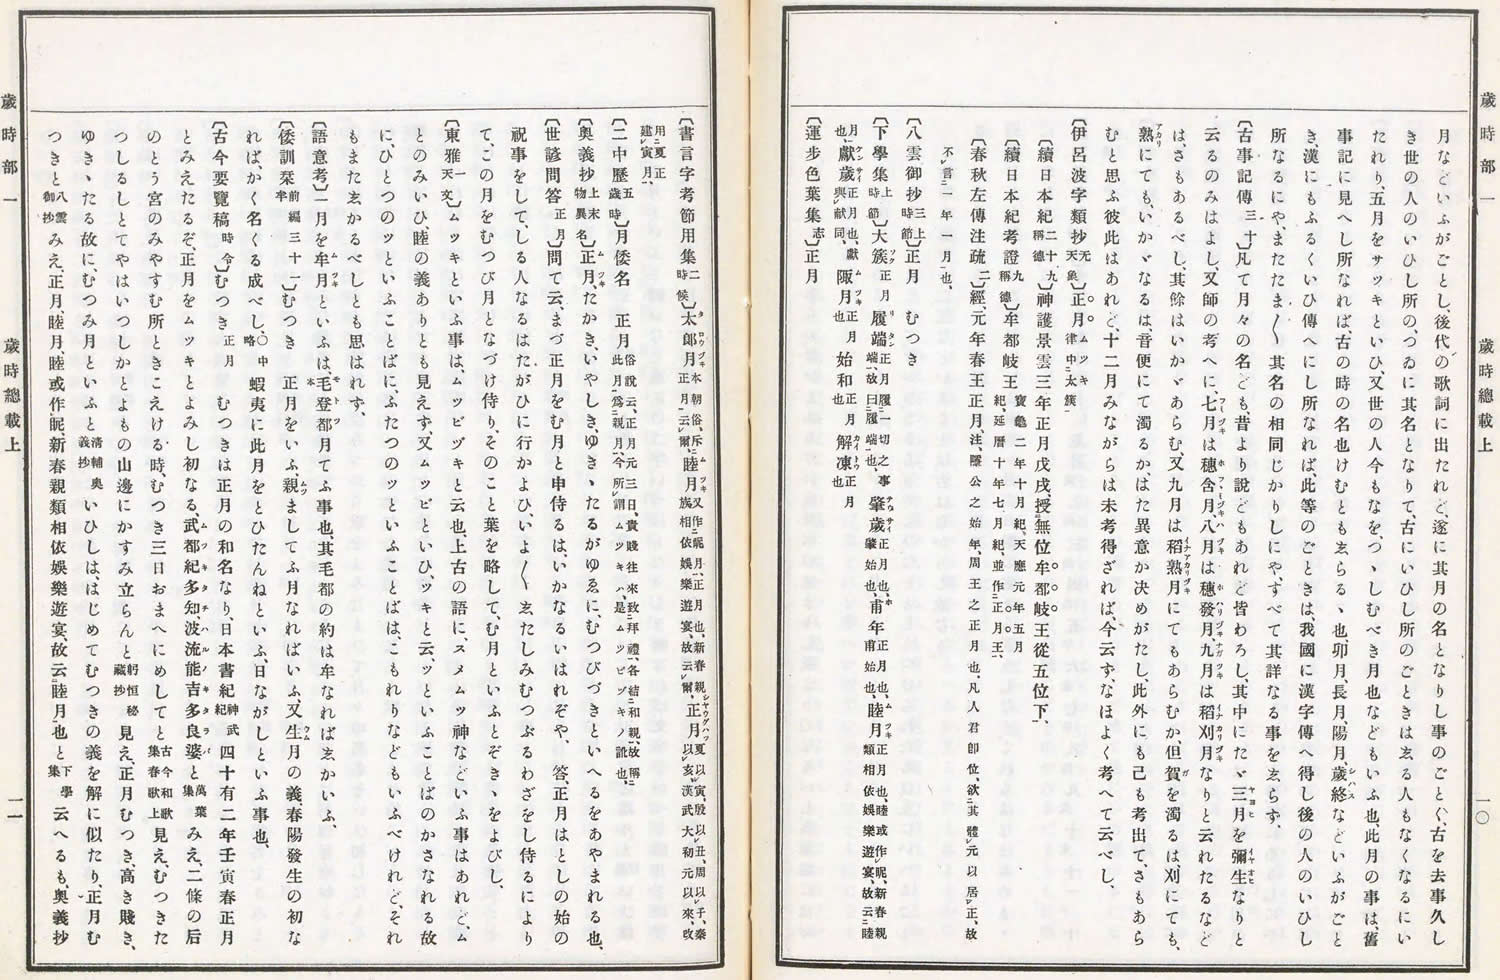 歲時部一
歲時總載上
一〇
月などいふがごとし、後代の歌詞に出たれど、遂に其月の名となりし事のごとく、古を去事久し
き世の人のいひし所の、つゐに其名となりて、古にいひし所のごときは玄る人もなくなるにい
たれり、五月をサツキといひ、又世の人今もなを、つゝしむべき月也などもいふ也、此月の事は、舊
事記に見へし所なれば、古の時の名也けむとも玄らるゝ也、卯月、長月、陽月、歲終などいふがごと
き、漢にもふるくいひ傳へにし所なれば、此等のごときは、我國に漢字傳へ得し後の人のいひし
所なるにや、またたま〱其名の相同じかりしにや、すべて其詳なる事を玄らず、
〔古事記傳三十〕凡て月々の名ども、昔より說どもあれど皆わろし、其中にたゞ三月を彌生なりと
云るのみはよし、又師の考へに、七月は穗含月、八月は穗發月、九月は稻刈月なりと云れたるなど
は、さもあるべし、其餘はいかゞあらむ、又九月は稻熟月にてもあらむか、但賀を濁るは、刈にても、
熟にても、いかゞなるは、音便にて濁るか、はた異意か決めがたし、此外にも己も考出て、さもあら
むと思ふ彼此はあれど、十二月みながらは未考得ざれば、今云ず、なほよく考へて云べし、
〔伊呂波字類抄天象〕正月ムツキ律中太簇
〔續日本紀二十九稱德〕神護景雲三年正月戊戌、授無位牟都岐王從五位下、
〔續日本紀考證九稱德〕牟都岐王寶龜二年十月紀、天應元年五月紀、延曆十年七月紀、並作正月王、
〔春秋左傳注疏二〕經、元年春王正月注、隱公之始年、周王之正月也、凡人君卽位、欲其體元以居正、故
不言一年一月也、
〔八雲御抄三上時節〕正月むつき
〔下學集時節〕大簇正月履端正月履一切之事端、故曰履端也、肇歲正月也、肇始也、甫年正月也、甫始也、睦月正月也、睦或作昵、新春親類相依娛樂遊宴、故云睦
月也、獻歲正月也、獻與献同、陬月正月也始和正月也解凍正月也
〔運步色葉集志〕正月
〔書言字考節用集二時候〕太郎月本朝俗、斥正月云爾、睦月又作昵月、正月也、新春親族相依娛樂遊宴、故云爾、正月夏以寅、殷以丑、周以子、秦以亥、漢武大初元以來改
用夏正建寅月、
〔二中歷五歲時〕月倭名 正月俗說云、正月元三日、貴賤往來致拜禮、各結和親、故稱此月爲親月、今所謂ムツキハ、是ムツビヅキノ訛也、
〔奧義抄上末物異名〕正月、たかき、いやしき、ゆきゝたるがゆゑに、むつびづきといへるをあやまれる也、
〔世諺問答正月〕問て云、まづ正月をむ月と申侍るは、いかなるいはれぞや、答、正月はとしの始の
祝事をして、しる人なるはたがひに行かよひ、いよ〱玄たしみむつぶるわざをし侍るにより
て、この月をむつび月となづけ侍り、そのこと葉を略して、む月といふとぞきゝをよびし、
〔東雅一天文〕ムツキといふ事は、ムツビヅキと云也、上古の語に、スメムツ神などいふ事はあれど、ム
とのみいひ、睦の義ありとも見えず、又ムツビといひ、ツキと云ツといふことばのかさなれる故
に、ひとつのツといふことばに、ふたつのツといふことばは、こもれりなどもいふべけれど、それ
もまた玄かるべしとも思はれず、
〔語意考〕一月を牟月といふは、毛登都月てふ事也、其毛都の約は牟なれば玄かいふ、
〔倭訓栞前編三十一牟〕むつき 正月をいふ、親ましてふ月なればいふ、又生月の義、春陽發生の初な
れば、かく名くる成べし、〇中略蝦夷に此月をとひたんねといふ、日ながしといふ事也、
〔古今要覽稿時令〕むつき正月 むつきは正月の和名なり、日本書紀神武紀四十有二年壬寅春正月
とみえたるぞ、正月をムツキとよみし初なる、武都紀多知、波流能吉多良婆と萬葉集みえ、二條の后
のとう宮のみやすむ所ときこえける時、むつき三日おまへにめしてと古今和歌集春歌上見え、むつきた
つしるしとてやはいつしかとよもの山邊にかすみ立らんと躬恒秘藏抄見え、正月むつき、高き賤き、
ゆきゝたる故に、むつみ月といふと淸輔奧義抄いひしは、はじめてむつきの義を解に似たり、正月む
つきと八雲御抄みえ、正月、睦月、睦或作昵、新春親類相依娛樂遊宴、故云睦月也と下學集云へるも、奧義抄
歲時部一
歲時總載上
一一